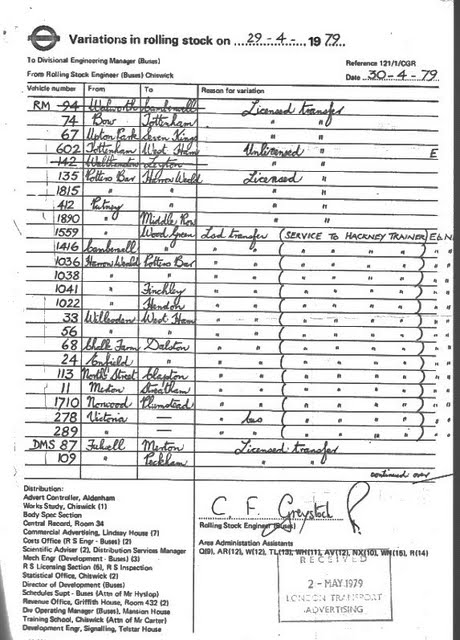 Variations in rolling stock on 29-4-1979
To Divisional Engineering Manager (Buses)
Reference 121/1/CGR
From Rolling Stock Engineer (Buses) Chiswick
Date 30-4-79
Vehicle number From To Reason for variation
RM 94 Walworth Camberwell Licensed transfer
74 Bow Tottenham " "
67 Upton Park Seven Kings " "
602 Tottenham West Ham Unlicensed " E
142 Walthamstow Leyton " "
135 Potters Bar Harrow Weald Licensed "
1815 " " " "
412 Putney " " "
1890 " Middle Row " "
1559 " Wood Green Lsd transfer (SERVICE TO HACKNEY TRAINER) E&N
1416 Camberwell " " " ( " " " " ) " "
1036 Harrow Weald Potters Bar " " ( " " " " ) " "
1038 " " " " ( " " " " ) " "
1041 " Finchley " " ( " " " " ) " "
1022 " Hendon " " ( " " " " ) " "
33 Willesden West Ham " " ( " " " " ) " "
56 " " " " ( " " " " ) " "
68 Chalk Farm Dalston " " ( " " " " ) " "
24 Enfield " " " ( " " " " ) " "
113 North Street Clapton " " ( " " " " ) " "
11 Merton Streatham " " ( " " " " ) " "
1710 Norwood Plumstead " " ( " " " " ) " "
278 Victoria — " bus ( " " " " ) " "
289 " — " " ( " " " " ) " "
DMS 87 Fulwell Merton Licensed transfer
109 " Peckham " "
continued over
Distribution:
Advert Controller, Aldenham
Works Study, Chiswick (1)
Body Spec Section
Central Record, Room 34
Commercial Advertising, Lindsay House (7)
Costs Office (R S Engr - Buses) (2)
Scientific Adviser (2), Distribution Services Manager
Mech Engr (Development - Buses) (3)
R S Licensing Section (5), R S Inspection
Statistical Office, Chiswick (2)
Director of Development (Buses)
Schedules Supt - Buses (Attn of Mr Hyslop)
Revenue Office, Griffith House, Room 432 (2)
Div Operating Manager (Buses), Mansion House
Training School, Chiswick (Attn of Mr Carter)
Development Engr, Signalling, Telstar House
C. F. Greystock
Rolling Stock Engineer (Buses)
Area Administation Assistants
Q(9), AR(12), W(12), TL(13), WH(11), AV(12), NX(10), WN(15), R(14)
RECEIVED
2 - MAY 1979
LONDON TRANSPORT
ADVERTISING